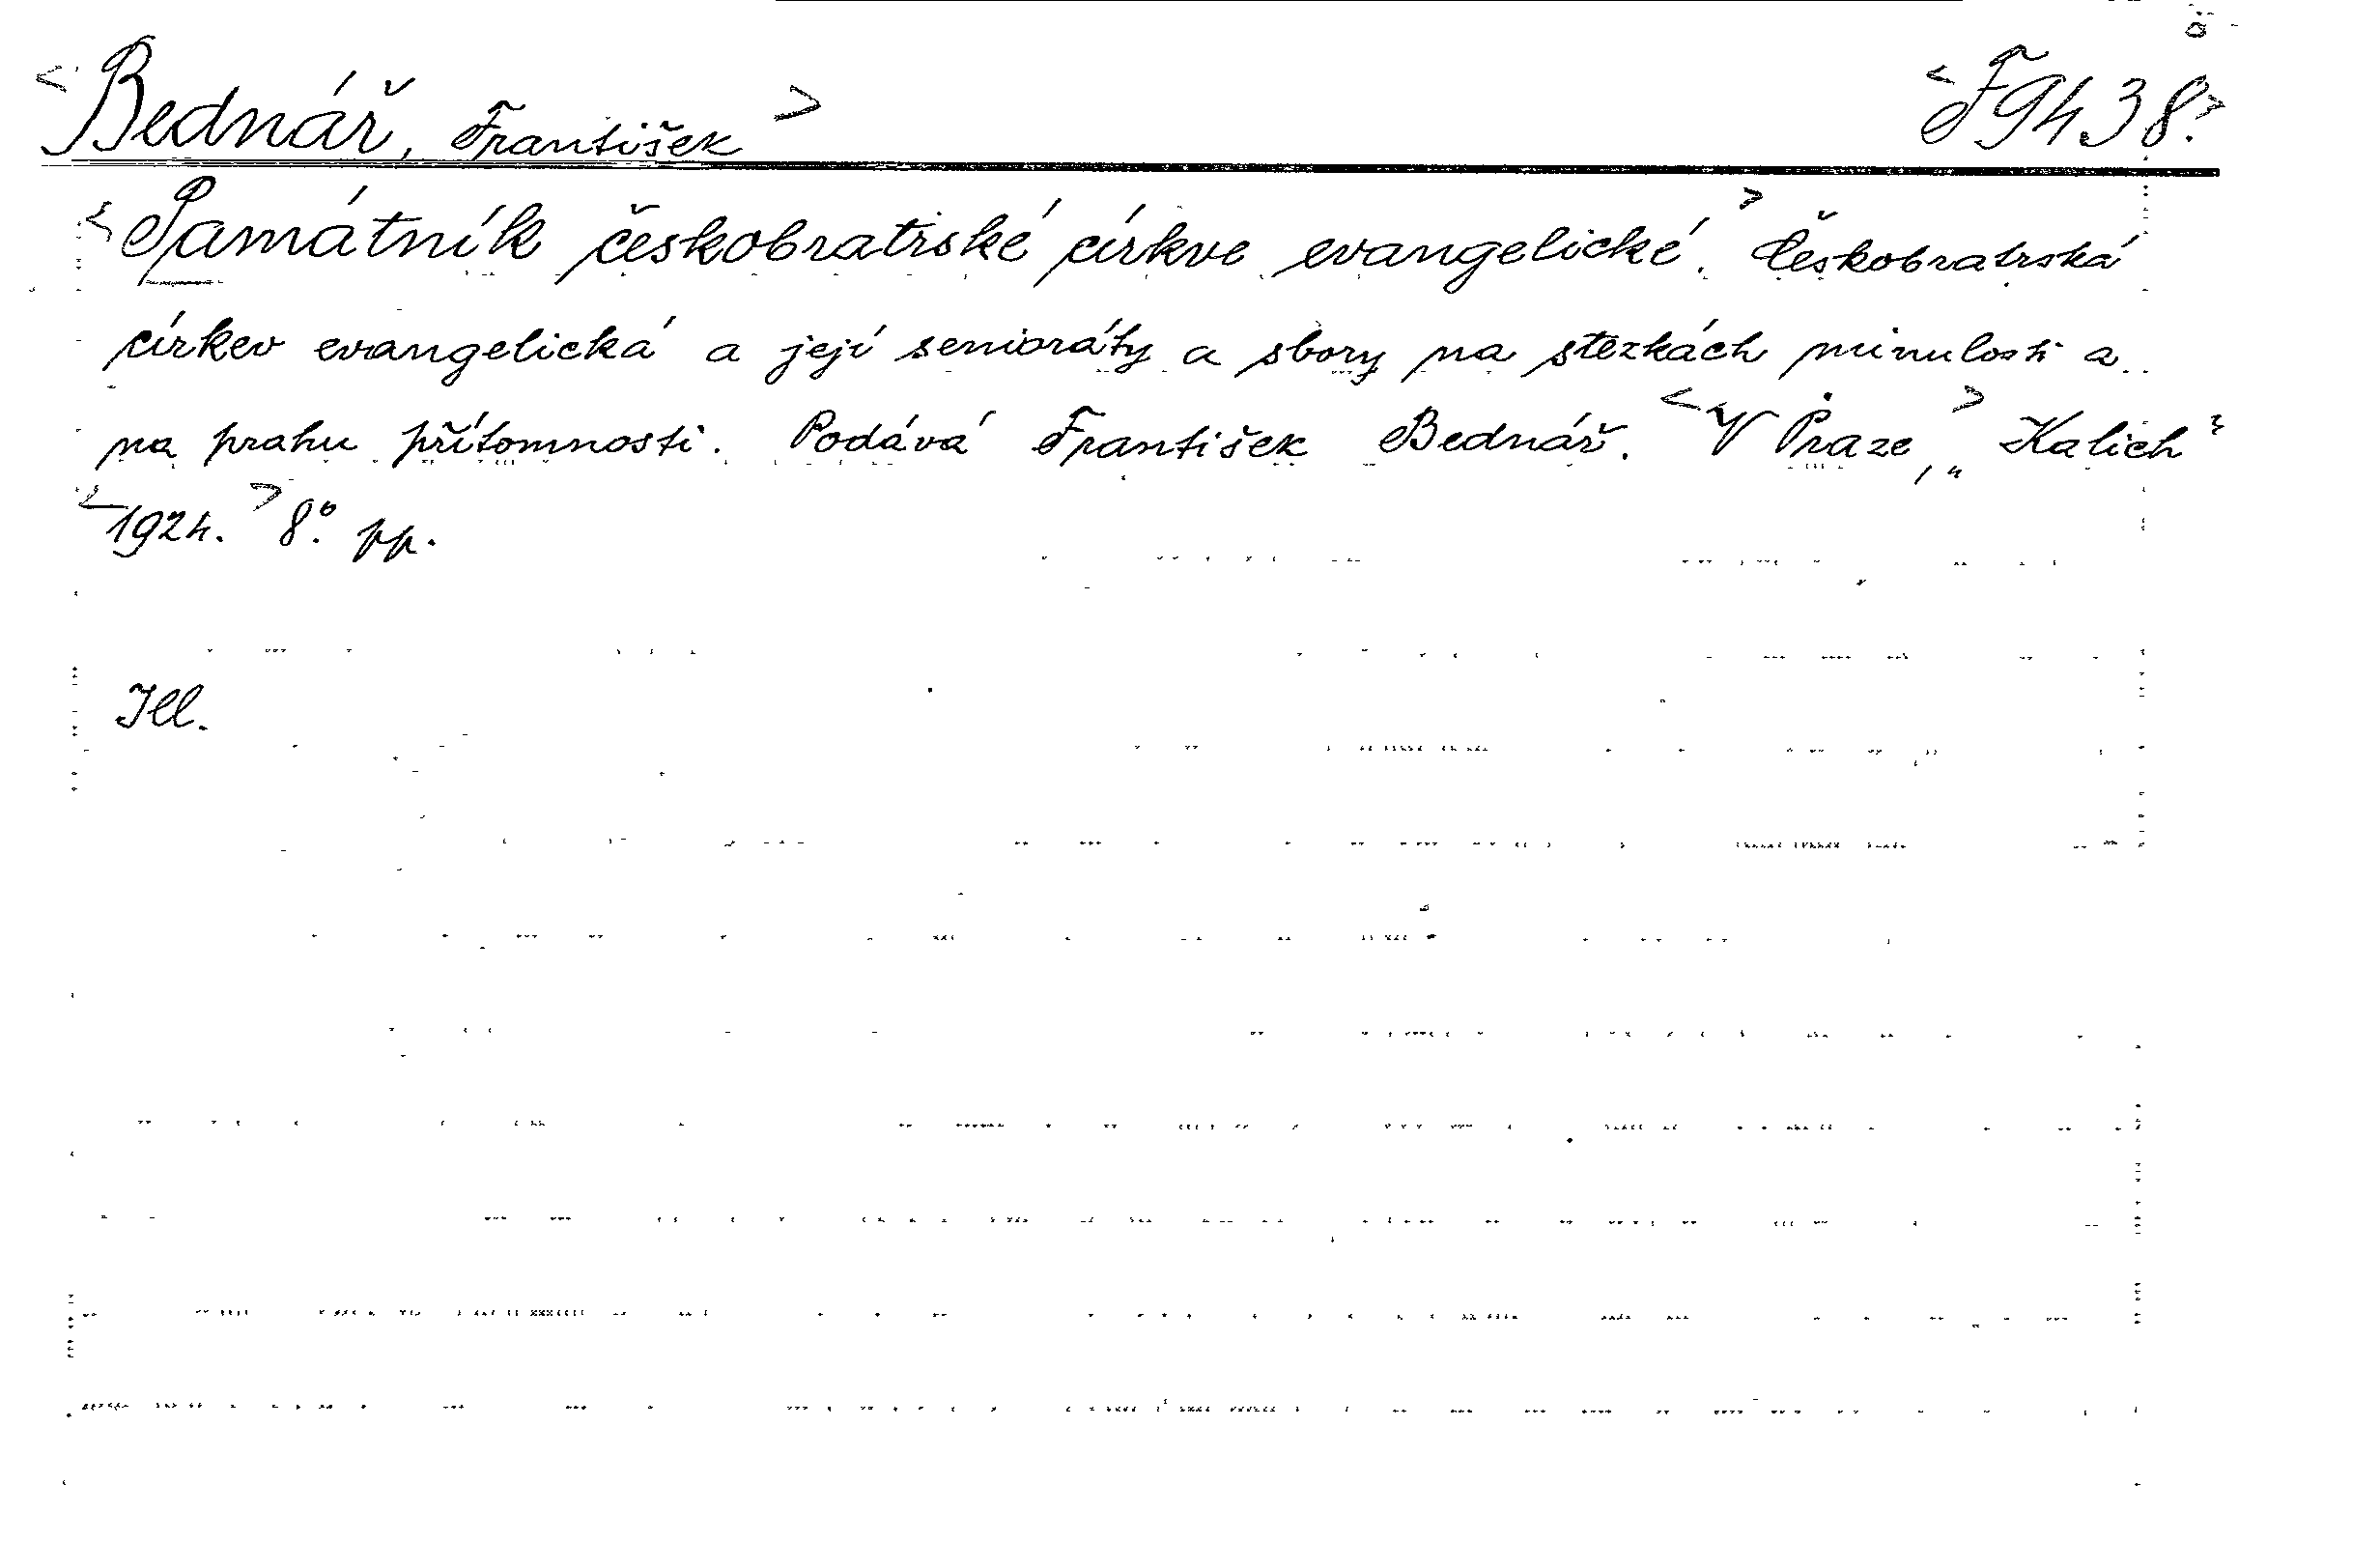 <Bednář, František> <F9438.>
<Památník českobratrské církve evangelické.> Českobratrská
církev evangelická a její senioráty a sbory na stezkách minulosti a
na prahu přítomnosti. Podává František Bednář. <V Praze,> „Kalich"
<1924.> 8°. pp.
Ill.